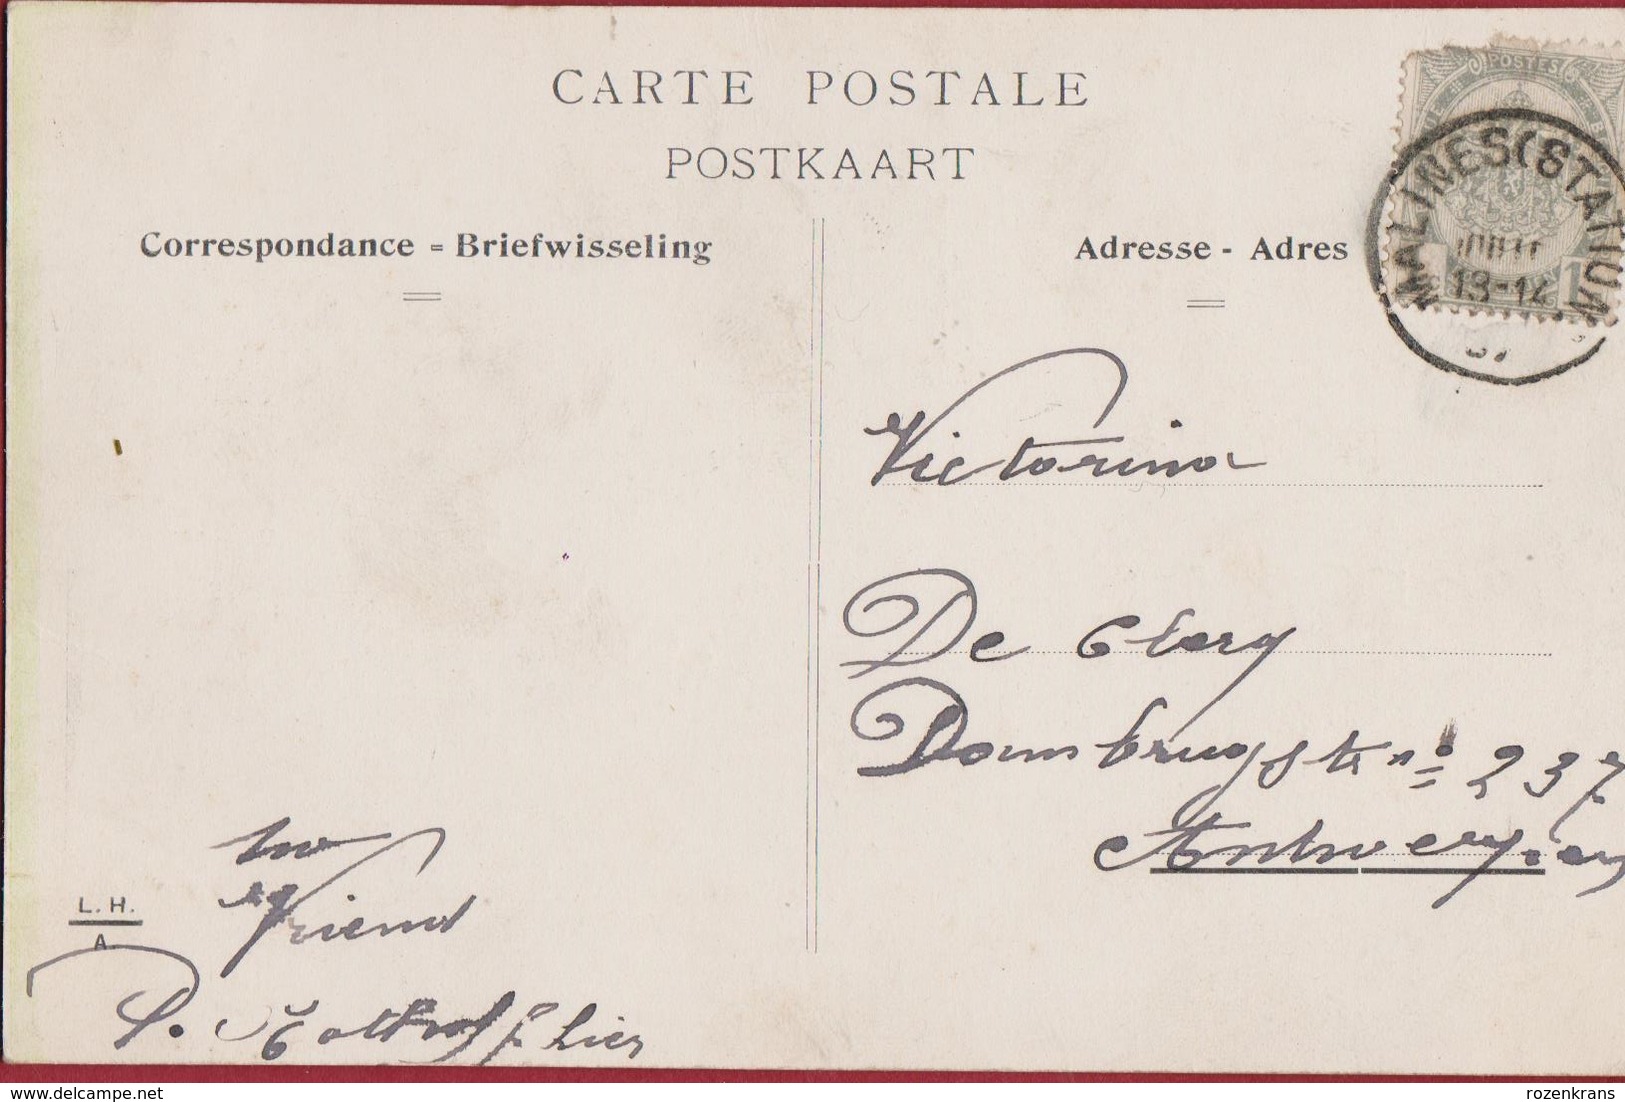 CARTE POSTALE
POSTKAART
Correspondance = Briefwisseling
Adresse - Adres
POSTES
MALINES (STATION)
13-14
Victorina
De Clerq
Dambrugstr nº 237
Antwerpen
Uw
Vriend
L. H.
A.
P.
Lier
delcampe.net
rozenkrans